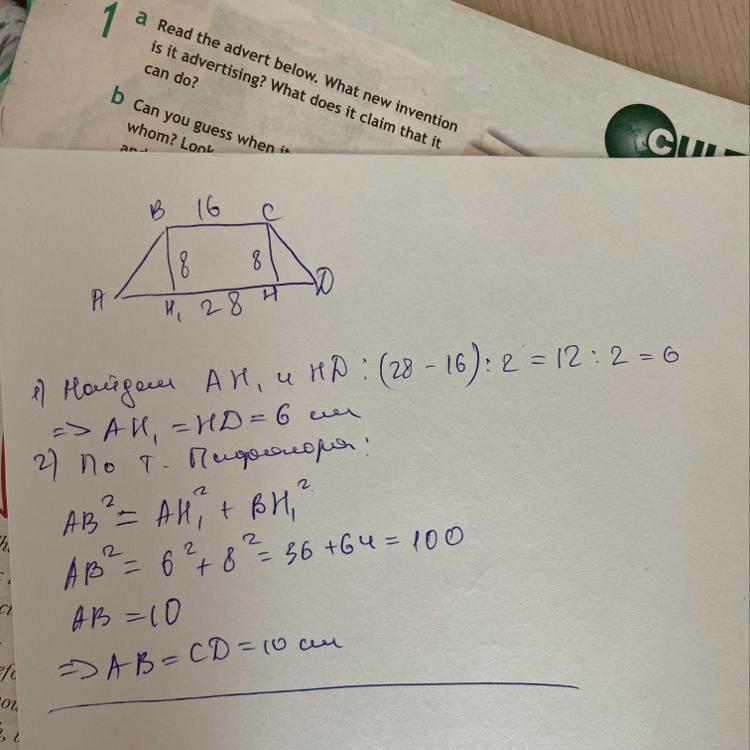 1 a Read the advert below. What new invention
is it advertising? What does it claim that it
can do?
b Can you guess when it
whom? Look
CULT
B 16 C
8 8
A H₁ 28 H D
1) Найдем AH₁ и HD : (28 - 16) : 2 = 12 : 2 = 6
=> AH₁ = HD = 6 см
2) По т. Пифагора:
AB² = AH₁² + BH₁²
AB² = 6² + 8² = 36 + 64 = 100
AB = 10
=> AB = CD = 10 см